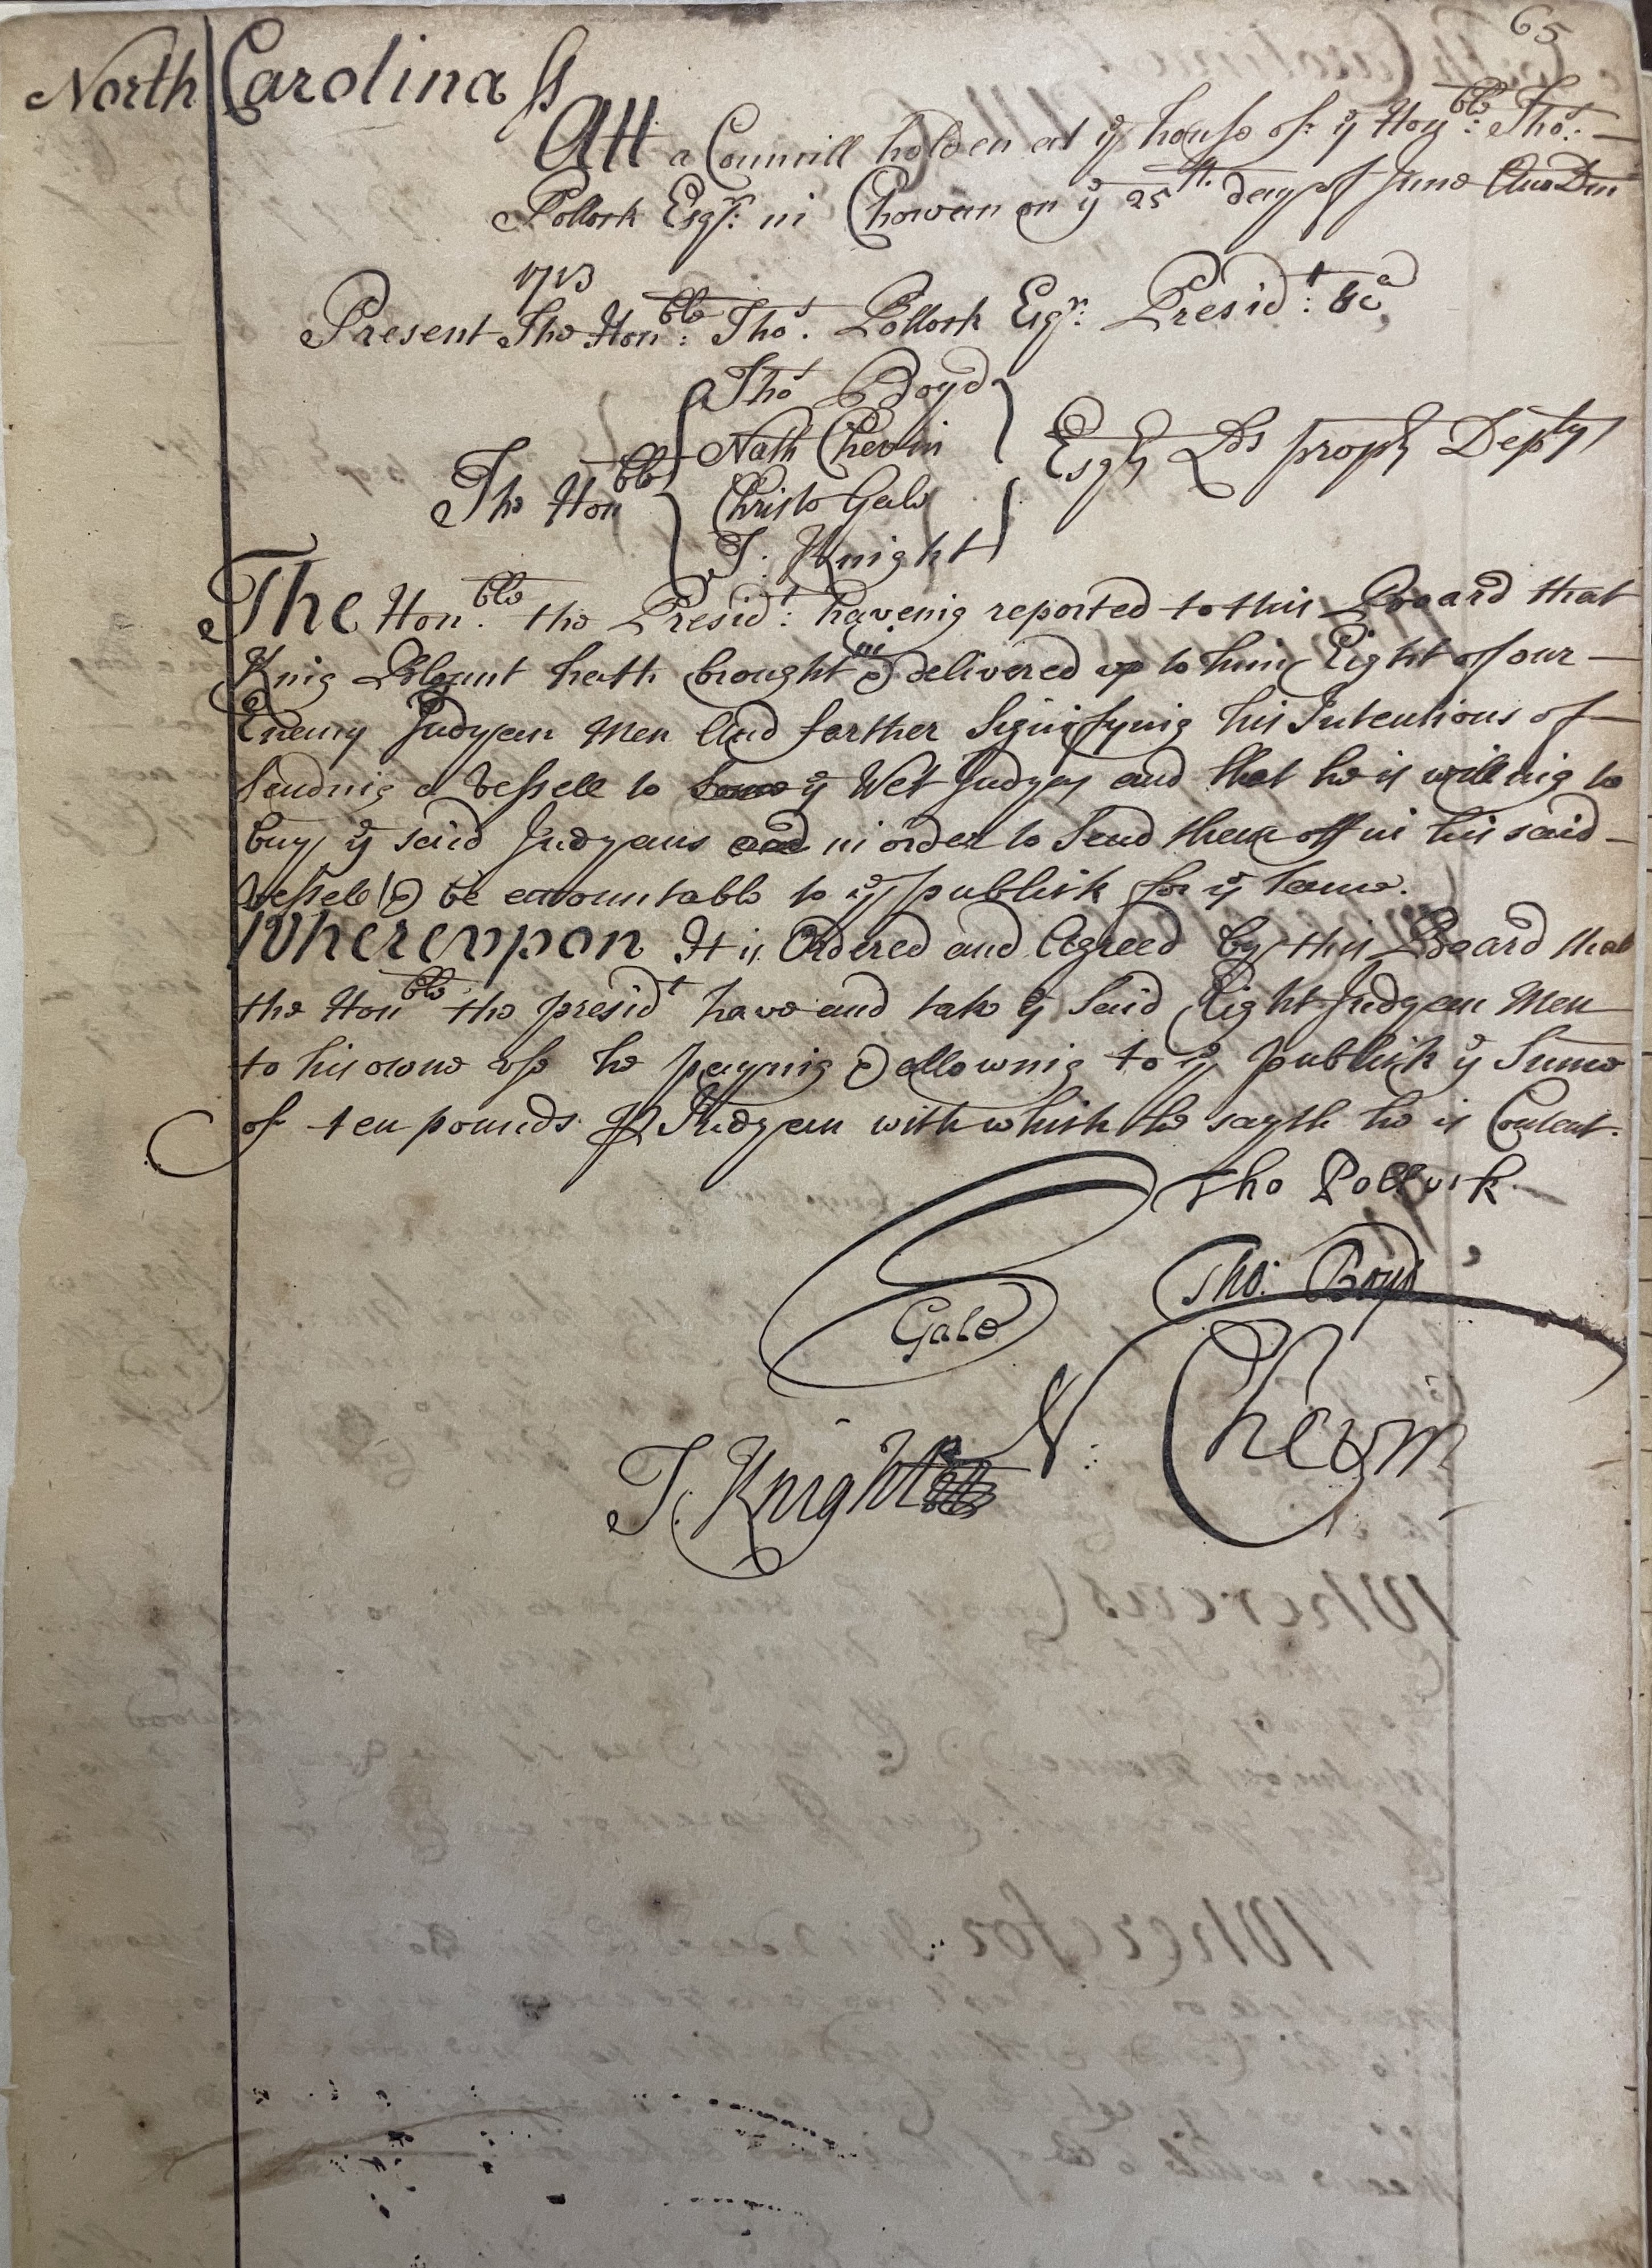 65
North Carolina ss
Att a Councill holden at ye house of ye Honble: Thos:
Pollock Esqr: in Chowan on ye 25th. day of June Ano Dm
1713
Present The Honble: Thos. Pollock Esqr: Presidt: &ca,
Thos Boyd
Nath Chevin
The Honble Esqrs Lds propts Deptys
Christo Gale
T. Knight
The Honble. the Presidt: haveing reported to this Board that
King Blount hath brought in & delivered up to him Eight of our
Enemy Indyan Men And farther Signifying his Intentions of
Sending a Vessell to ye West Indyes and that he is willing to
buy ye said Indyans and in order to Send them off in his said
Vessele & be accountable to ye publick for ye same.
Wherevpon It is Ordered and Agreed by this Board that
the Honble the presidt have and take ye Said Eight Indyan Men
to his owne use he paying & allowing to ye publick ye Sume
of ten pounds P Indyan with which he sayth he is Content.
Tho Pollock
Tho: Boyd
C Gale
N: Chevin
T. Knight